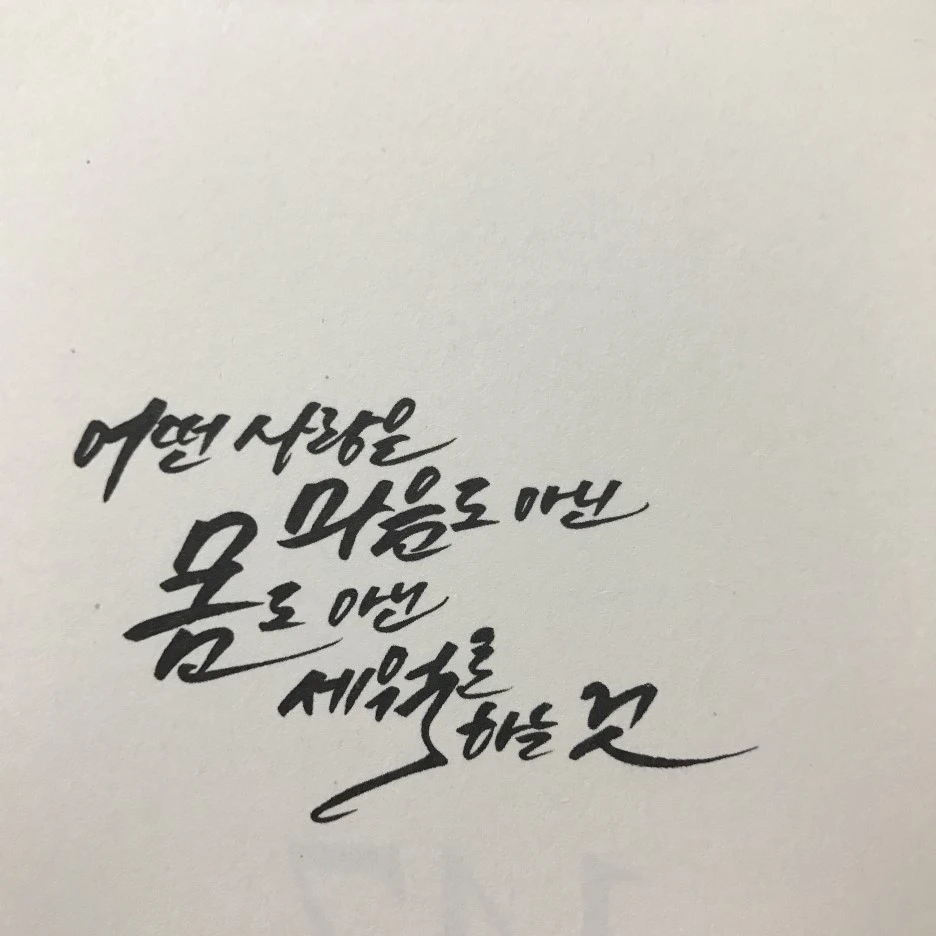 어떤 사랑은
마음도 아닌
몸도 아닌
세월로
하는 것